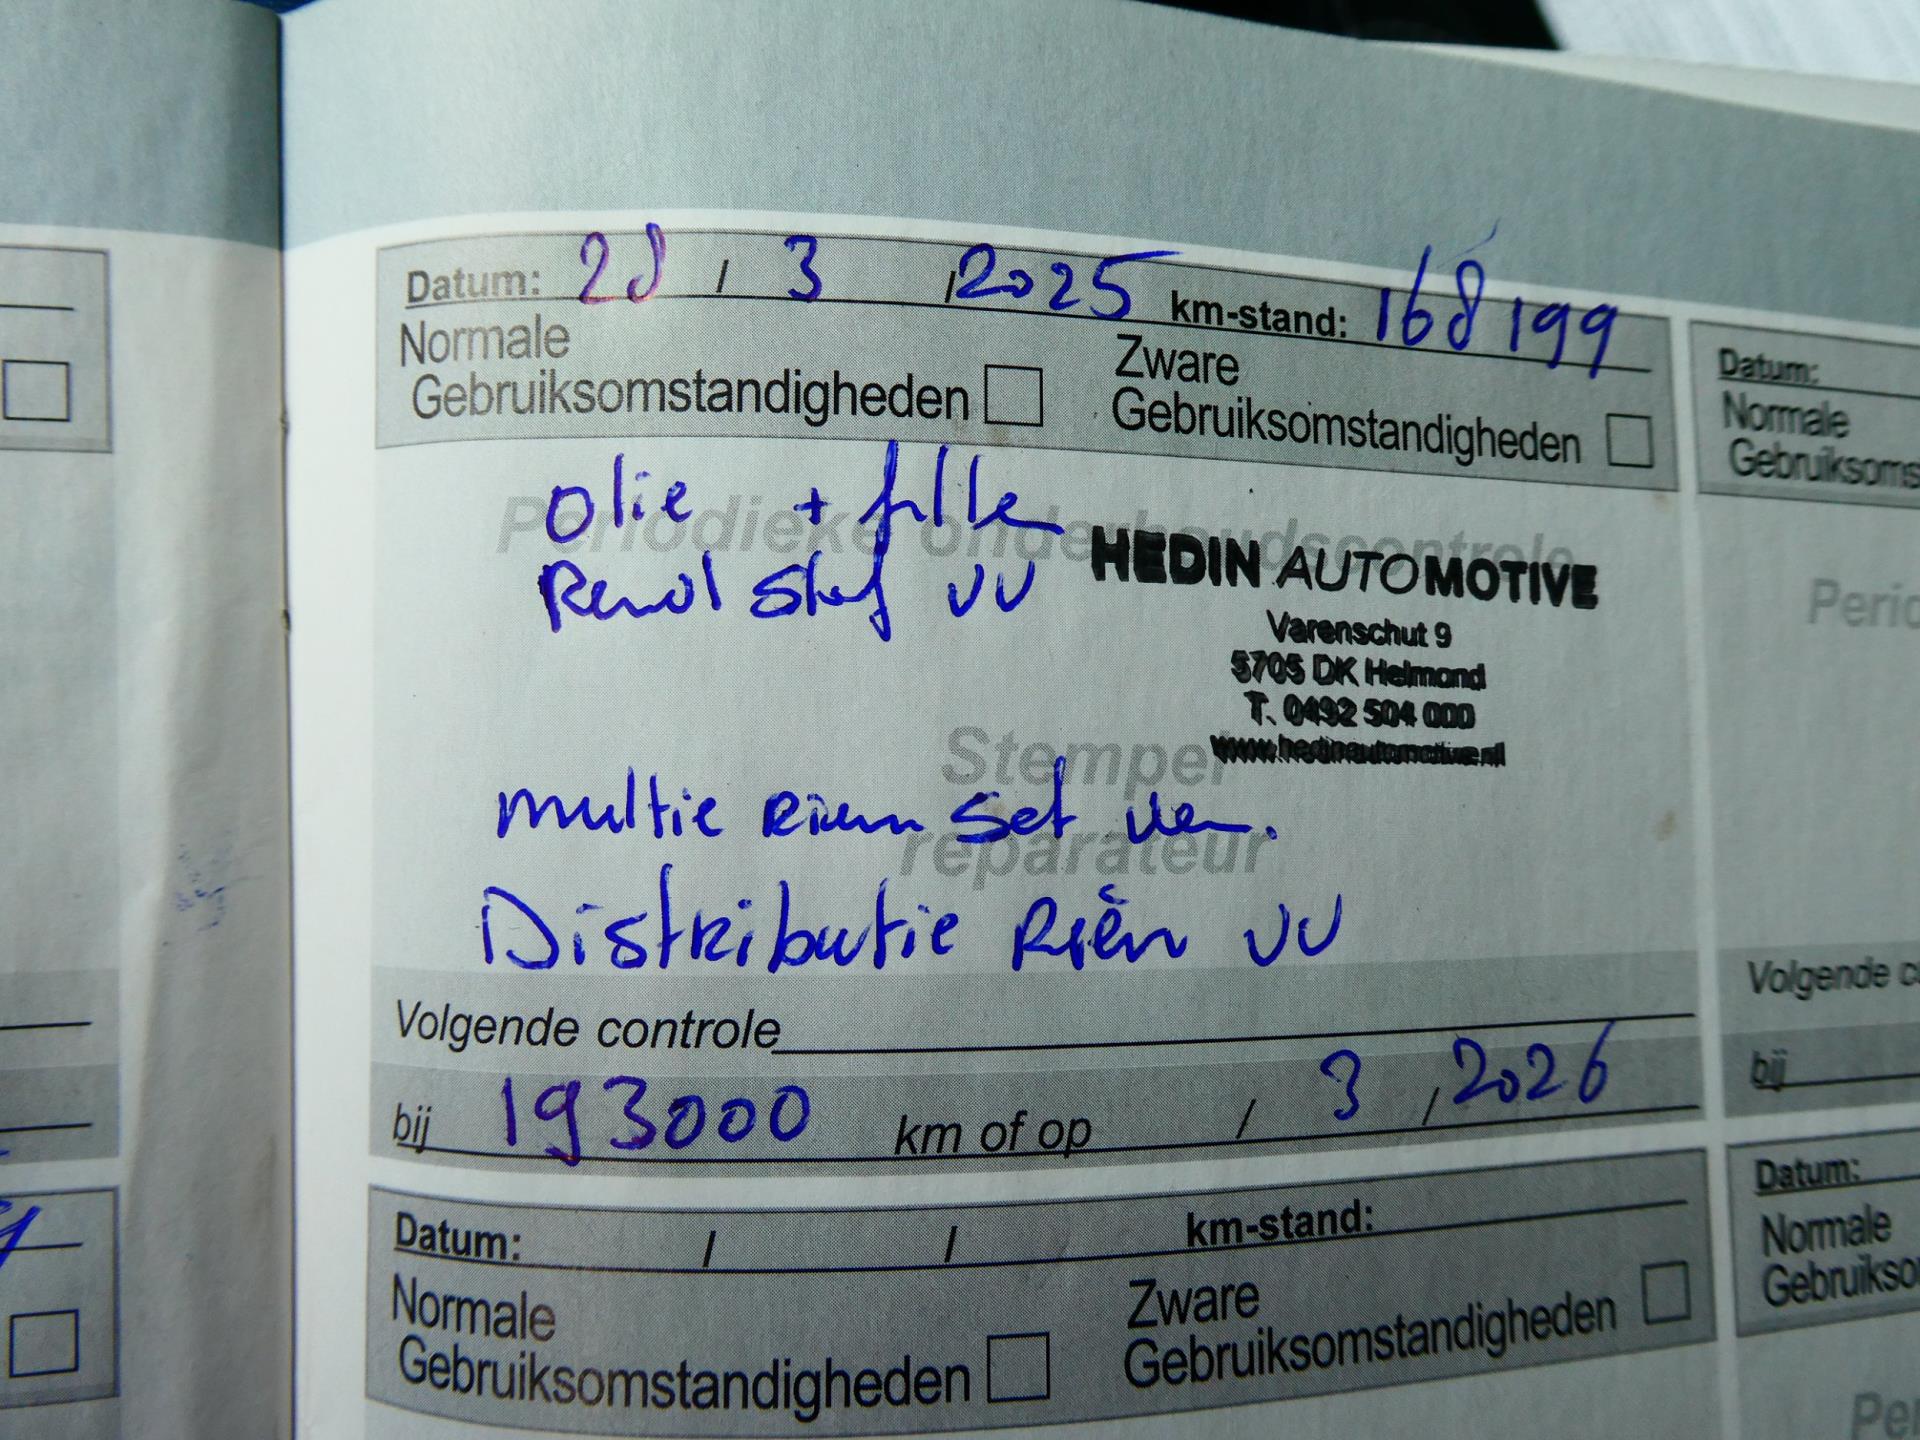 Datum: 28 / 3 / 2025 km-stand: 168199
Normale Gebruiksomstandigheden
Zware Gebruiksomstandigheden
Datum:
Normale
Gebruiksoms
olie + filter
Periodieke onderhoudscontrole
Remol stof VV
HEDIN AUTOMOTIVE
Varenschut 9
5705 DK Helmond
T. 0492 504 000
www.hedinautomotive.nl
Perio
Stempel
reparateur
multie Riem set ver.
Distributie Riem VV
Volgende controle
bij 193000 km of op / 3 / 2026
Volgende c
bij
Datum: / / km-stand:
Normale Gebruiksomstandigheden
Zware Gebruiksomstandigheden
Datum:
Normale
Gebruikso
Per